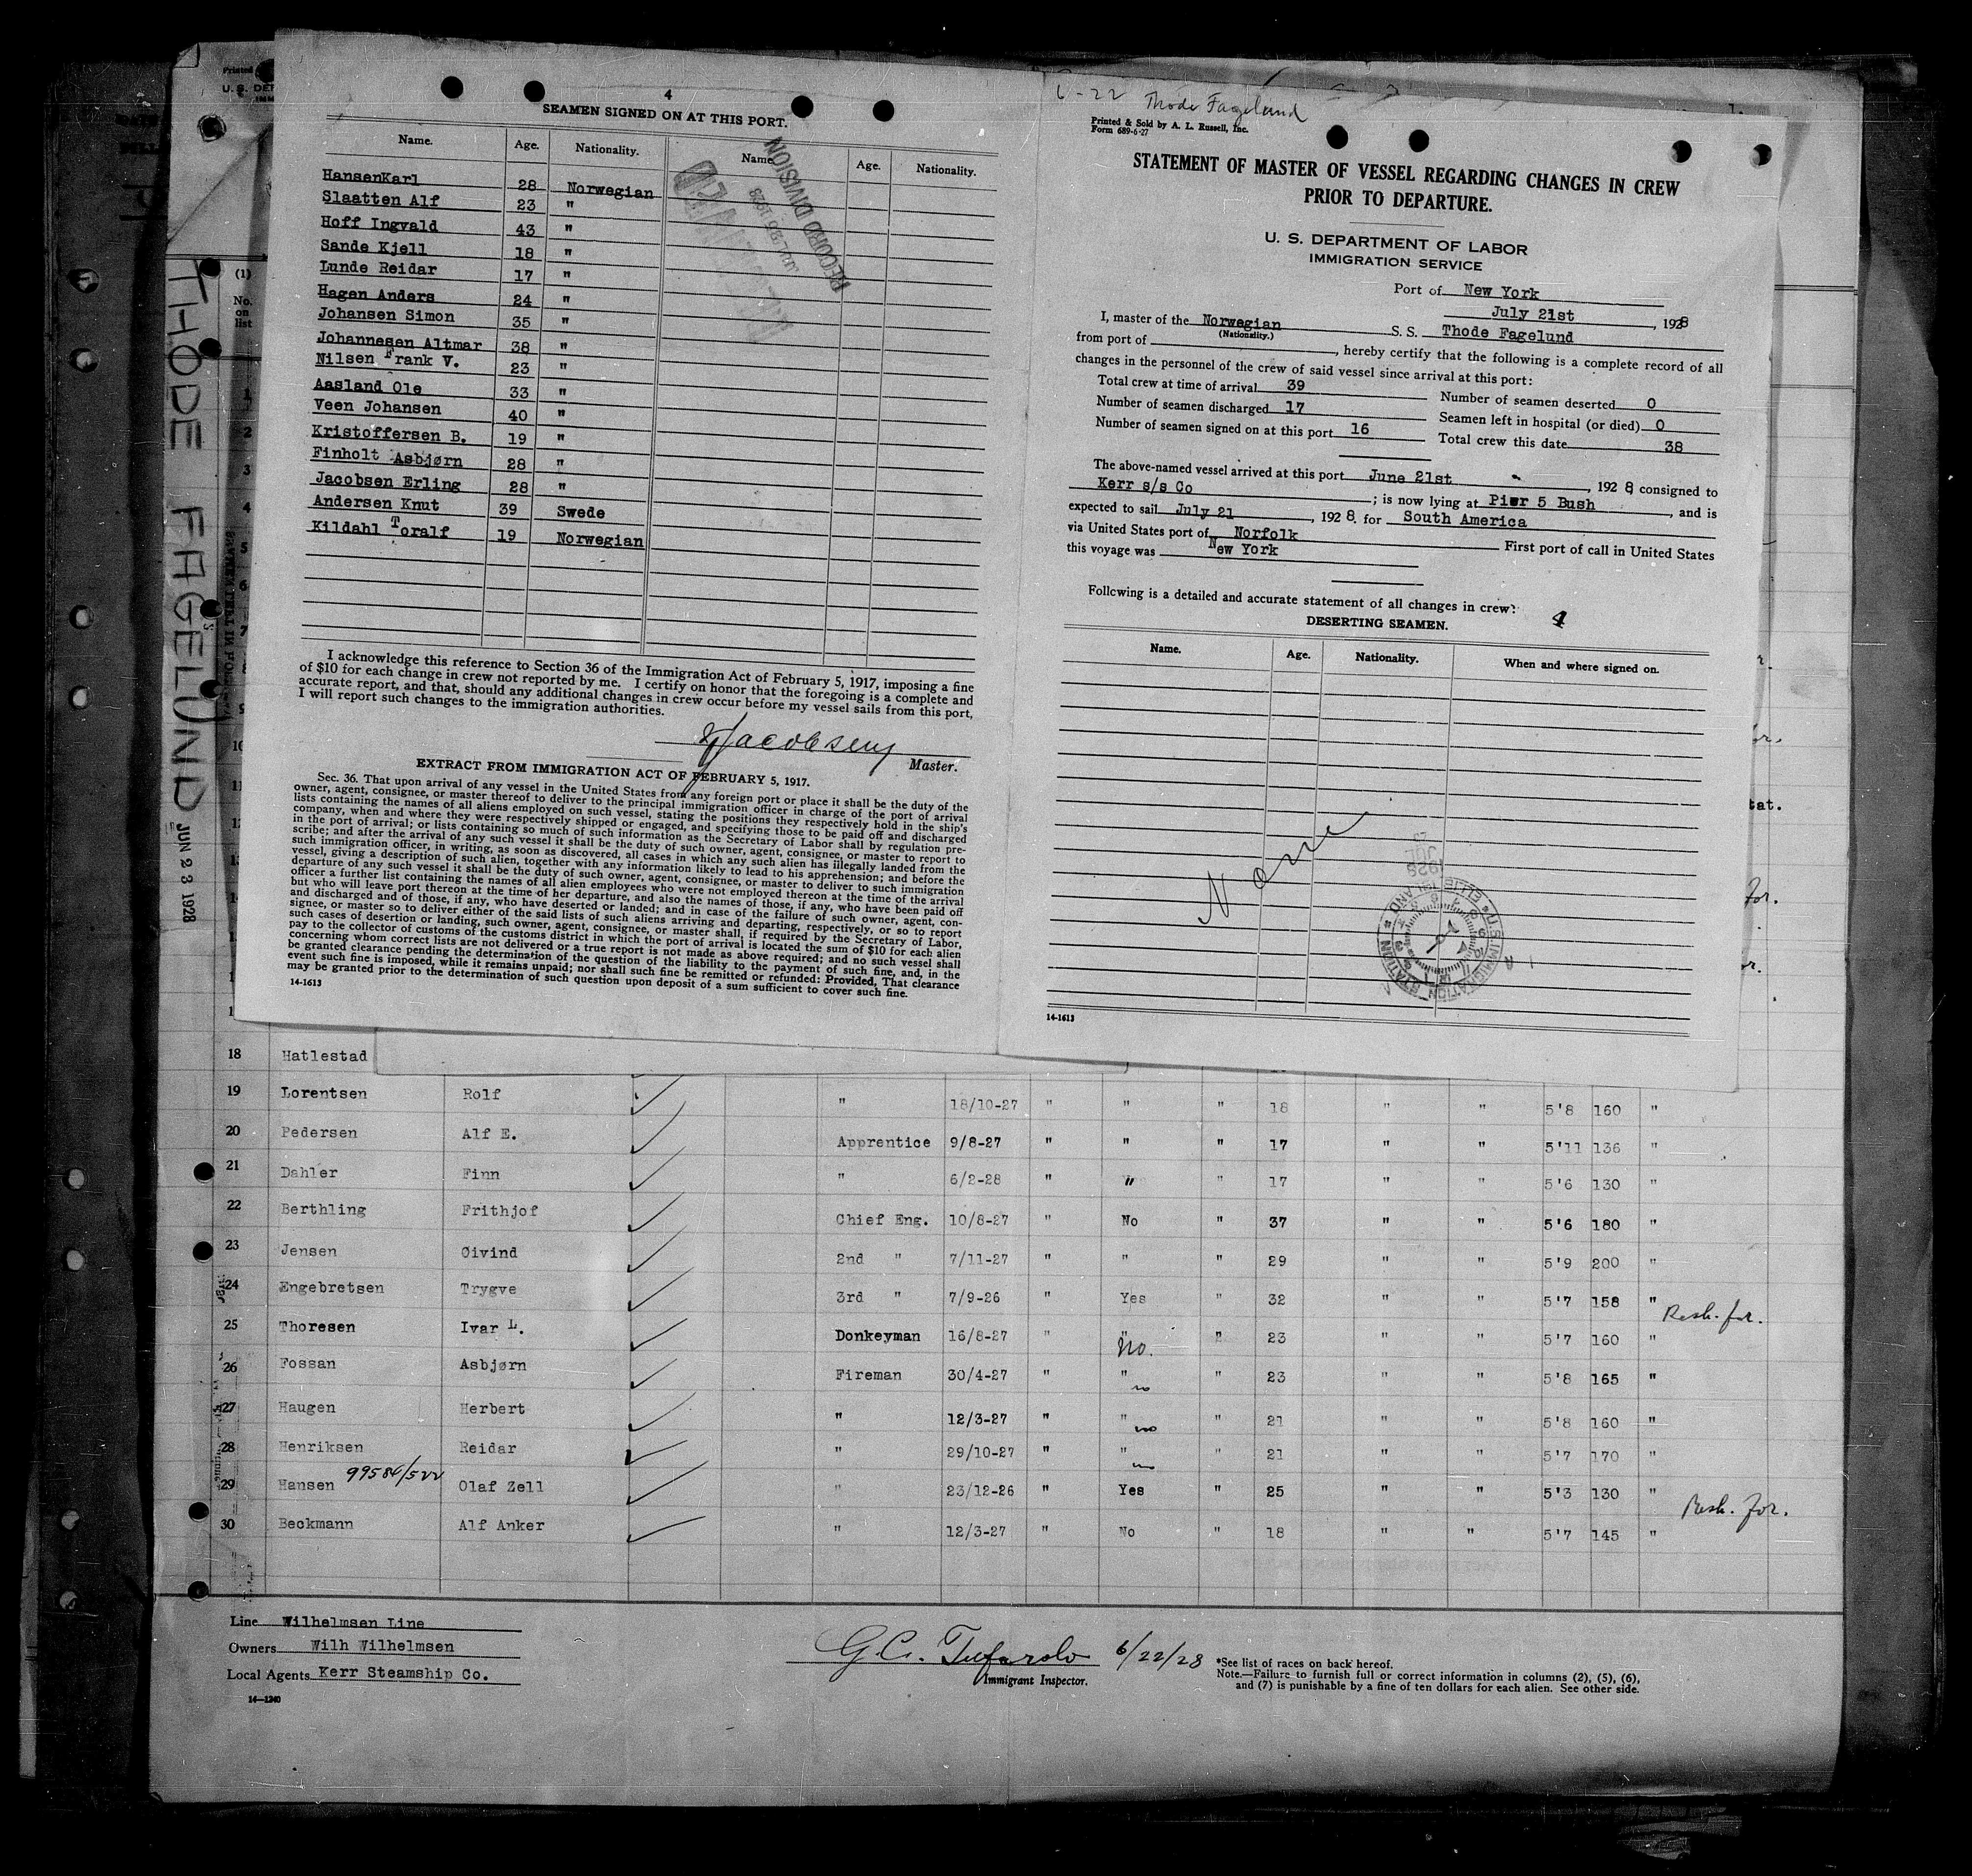 THODE FAGELUND JUN 23 1928
Printed
U. S. DE
IMM
(1)
No.
on
list
4
SEAMEN SIGNED ON AT THIS PORT.
Name. Age. Nationality. Name. Age. Nationality.
HansenKarl 28 Norwegian
Slaatten Alf 23 "
Hoff Ingvald 43 "
Sande Kjell 18 "
Lunde Reidar 17 "
Hagen Anders 24 "
Johansen Simon 35 "
Johannesen Altmar 38 "
Nilsen Frank V. 23 "
Aasland Ole 33 "
Veen Johansen 40 "
Kristoffersen B. 19 "
Finholt Asbjørn 28 "
Jacobsen Erling 28 "
Andersen Knut 39 Swede
Kildahl Toralf 19 Norwegian
RECORD DIVISION
I acknowledge this reference to Section 36 of the Immigration Act of February 5, 1917, imposing a fine
of $10 for each change in crew not reported by me. I certify on honor that the foregoing is a complete and
accurate report, and that, should any additional changes in crew occur before my vessel sails from this port,
I will report such changes to the immigration authorities.
Jacobsen
Master.
EXTRACT FROM IMMIGRATION ACT OF FEBRUARY 5, 1917.
Sec. 36. That upon arrival of any vessel in the United States from any foreign port or place it shall be the duty of the
owner, agent, consignee, or master thereof to deliver to the principal immigration officer in charge of the port of arrival
lists containing the names of all aliens employed on such vessel, stating the positions they respectively hold in the ship's
company, when and where they were respectively shipped or engaged, and specifying those to be paid off and discharged
in the port of arrival; or lists containing so much of such information as the Secretary of Labor shall by regulation pre-
scribe; and after the arrival of any such vessel it shall be the duty of such owner, agent, consignee, or master to report to
such immigration officer, in writing, as soon as discovered, all cases in which any such alien has illegally landed from the
vessel, giving a description of such alien, together with any information likely to lead to his apprehension; and before the
departure of any such vessel it shall be the duty of such owner, agent, consignee, or master to deliver to such immigration
officer a further list containing the names of all alien employees who were not employed thereon at the time of the arrival
but who will leave port thereon at the time of her departure, and also the names of those, if any, who have been paid off
and discharged and of those, if any, who have deserted or landed; and in case of the failure of such owner, agent, con-
signee, or master so to deliver either of the said lists of such aliens arriving and departing, respectively, or so to report
such cases of desertion or landing, such owner, agent, consignee, or master shall, if required by the Secretary of Labor,
pay to the collector of customs of the customs district in which the port of arrival is located the sum of $10 for each alien
concerning whom correct lists are not delivered or a true report is not made as above required; and no such vessel shall
be granted clearance pending the determination of the question of the liability to the payment of such fine, and, in the
event such fine is imposed, while it remains unpaid; nor shall such fine be remitted or refunded: Provided, That clearance
may be granted prior to the determination of such question upon deposit of a sum sufficient to cover such fine.
14-1613
6-22 Thode Fagelund
Printed & Sold by A. L. Russell, Inc.
Form 689-6-27
STATEMENT OF MASTER OF VESSEL REGARDING CHANGES IN CREW
PRIOR TO DEPARTURE.
U. S. DEPARTMENT OF LABOR
IMMIGRATION SERVICE
Port of New York
July 21st, 1928
I, master of the Norwegian S. S. Thode Fagelund
(Nationality.)
from port of , hereby certify that the following is a complete record of all
changes in the personnel of the crew of said vessel since arrival at this port:
Total crew at time of arrival 39 Number of seamen deserted 0
Number of seamen discharged 17 Seamen left in hospital (or died) 0
Number of seamen signed on at this port 16 Total crew this date 38
The above-named vessel arrived at this port June 21st, 1928 consigned to
Kerr s/s Co ; is now lying at Pier 5 Bush, and is
expected to sail July 21, 1928. for South America
via United States port of Norfolk First port of call in United States
this voyage was New York
Following is a detailed and accurate statement of all changes in crew: 4
DESERTING SEAMEN.
Name. Age. Nationality. When and where signed on.
None
U.S. IMMIGRATION STATION ELLIS ISLAND
14-1613
18 Hatlestad
19 Lorentsen Rolf " 18/10-27 " " " 18 " " 5'8 160 "
20 Pedersen Alf E. Apprentice 9/8-27 " " " 17 " " 5'11 136 "
21 Dahler Finn " 6/2-28 " " " 17 " " 5'6 130 "
22 Berthling Frithjof Chief Eng. 10/8-27 " No " 37 " " 5'6 180 "
23 Jensen Øivind 2nd " 7/11-27 " " " 29 " " 5'9 200 "
24 Engebretsen Trygve 3rd " 7/9-26 " Yes " 32 " " 5'7 158 " Resh. for.
25 Thoresen Ivar L. Donkeyman 16/8-27 " " No. " 23 " " 5'7 160 "
26 Fossan Asbjørn Fireman 30/4-27 " " no " 23 " " 5'8 165 "
27 Haugen Herbert " 12/3-27 " " no " 21 " " 5'8 160 "
28 Henriksen Reidar " 29/10-27 " " no " 21 " " 5'7 170 "
29 Hansen 99586/522 Olaf Zell " 23/12-26 " Yes " 25 " " 5'3 130 " Resh. for.
30 Beckmann Alf Anker " 12/3-27 " No " 18 " " 5'7 145 "
Line Wilhelmsen Line
Owners Wilh Wilhelmsen
Local Agents Kerr Steamship Co.
14—1240
G.C. Tufarolo 6/22/28
Immigrant Inspector.
*See list of races on back hereof.
Note.—Failure to furnish full or correct information in columns (2), (5), (6),
and (7) is punishable by a fine of ten dollars for each alien. See other side.